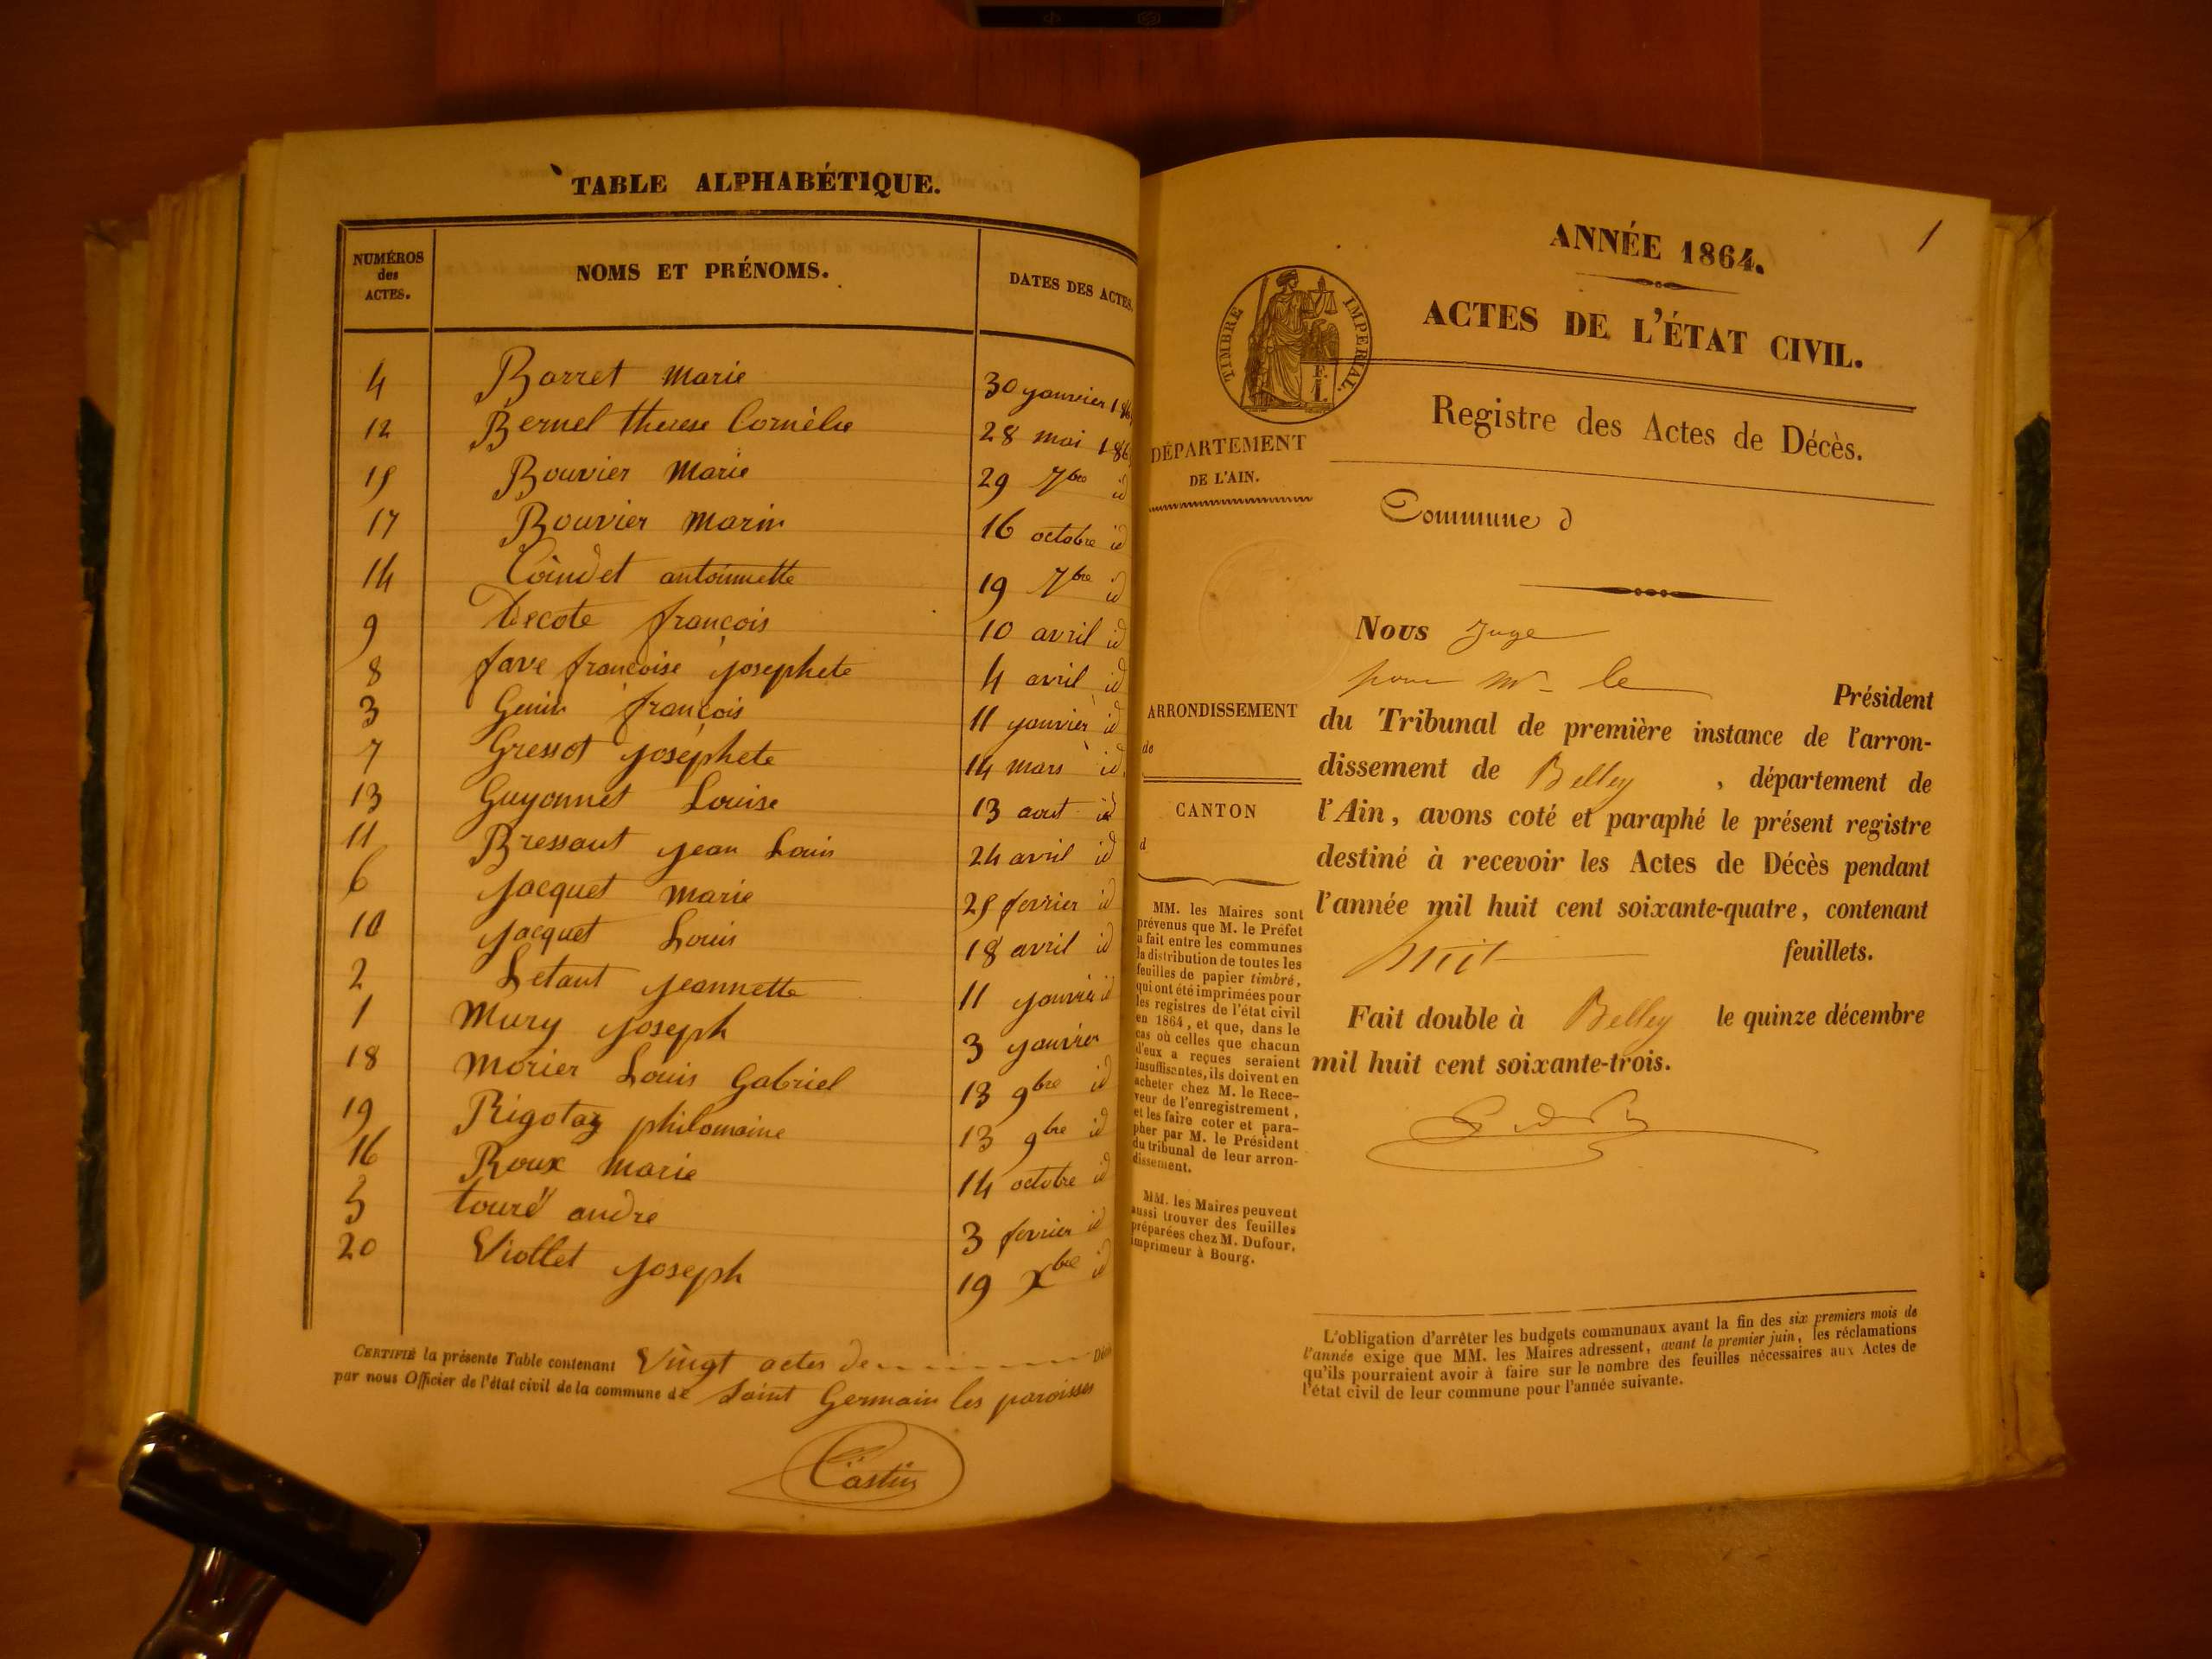 TABLE ALPHABÉTIQUE.
NUMÉROS des ACTES.
NOMS ET PRÉNOMS.
DATES DES ACTES.
4 Barret Marie 30 janvier
12 Bernel therese Cornélie 28 mai
15 Bouvier Marie 29 7bre id
17 Bouvier Marin 16 octobre id
14 Coindet antoinette 19 7bre id
9 Decote françois 10 avril id
8 fave françoise josephete 4 avril id
3 Genin françois 11 janvier id
7 Gressot josephete 14 mars id
13 Guyonnet Louise 13 aout id
11 Bressaut jean Louis 24 avril id
6 jacquet marie 25 fevrier id
10 jacquet Louis 18 avril id
2 Letant jeannette 11 janvier id
1 Mury joseph 3 janvier
18 Morier Louis Gabriel 13 9bre id
19 Rigotaz philomaine 13 9bre id
16 Roux Marie 14 octobre id
5 touré andre 3 fevrier id
20 Viollet joseph 19 Xbre id
CERTIFIÉ la présente Table contenant Vingt actes de
par nous Officier de l'état civil de la commune de Saint Germain les paroisses
Castin
1
ANNÉE 1864.
ACTES DE L'ÉTAT CIVIL.
TIMBRE IMPÉRIAL.
Registre des Actes de Décès.
DÉPARTEMENT
DE L'AIN.
Commune d
Nous Juge
pour Mr le Président
ARRONDISSEMENT
de
du Tribunal de première instance de l'arron-
dissement de Belley , département de
l'Ain, avons coté et paraphé le présent registre
destiné à recevoir les Actes de Décès pendant
l'année mil huit cent soixante-quatre, contenant
huit feuillets.
Fait double à Belley le quinze décembre
mil huit cent soixante-trois.
CANTON
d
MM. les Maires sont
prévenus que M. le Préfet
a fait entre les communes
la distribution de toutes les
feuilles de papier timbré,
qui ont été imprimées pour
les registres de l'état civil
en 1864, et que, dans le
cas où celles que chacun
d'eux a reçues seraient
insuffisantes, ils doivent en
acheter chez M. le Rece-
veur de l'enregistrement,
et les faire coter et para-
pher par M. le Président
du tribunal de leur arron-
dissement.
MM. les Maires peuvent
aussi trouver des feuilles
préparées chez M. Dufour,
imprimeur à Bourg.
L'obligation d'arrêter les budgets communaux avant la fin des six premiers mois de
l'année exige que MM. les Maires adressent, avant le premier juin, les réclamations
qu'ils pourraient avoir à faire sur le nombre des feuilles nécessaires aux Actes de
l'état civil de leur commune pour l'année suivante.